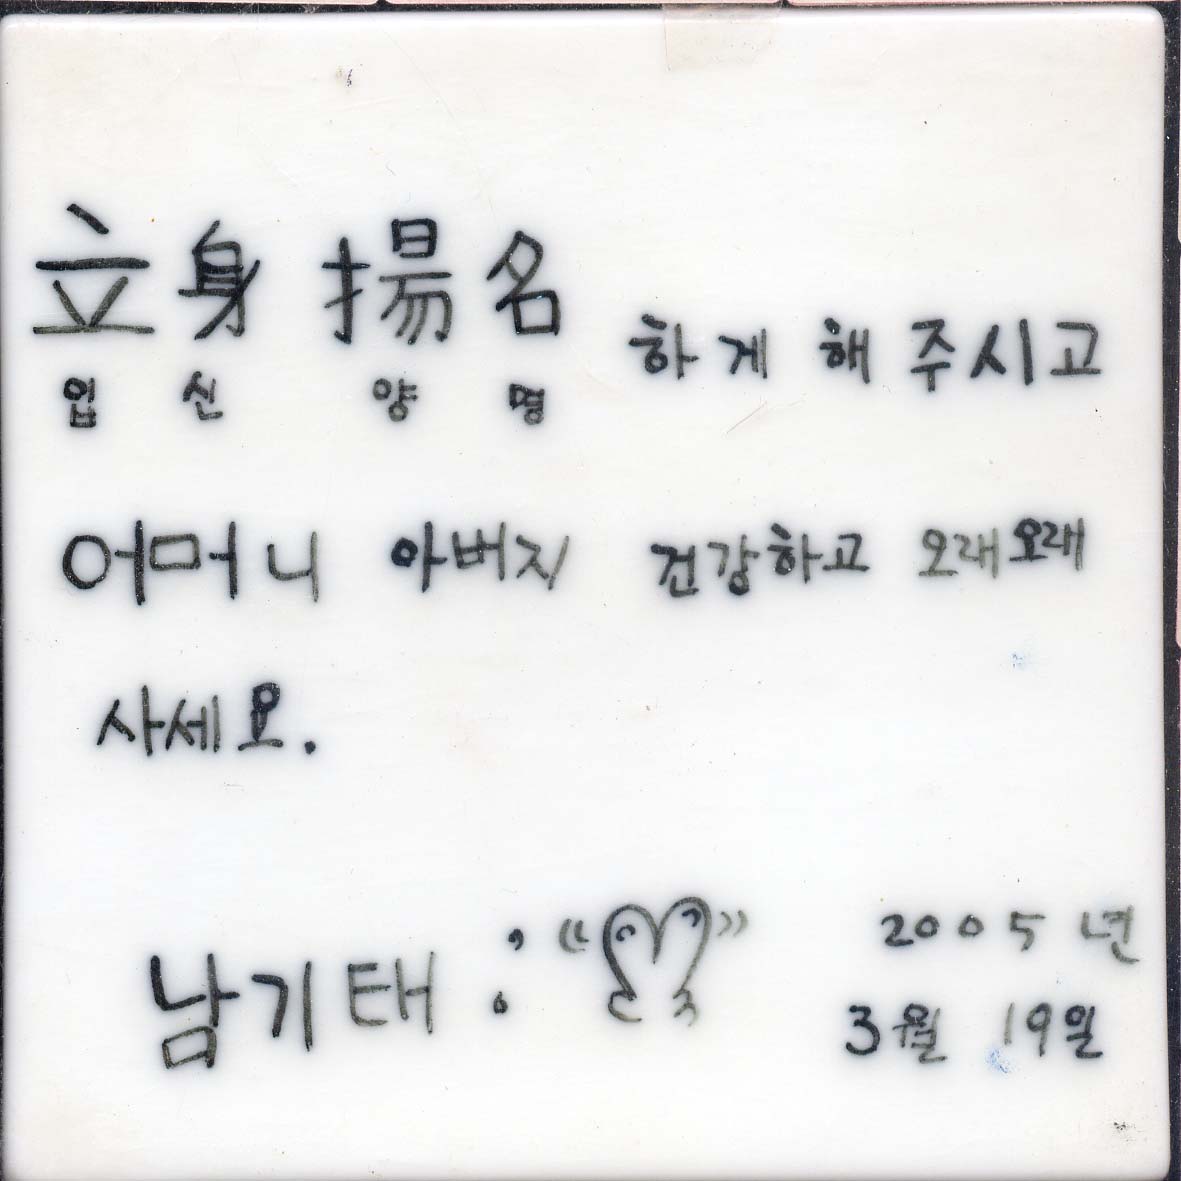 立身揚名 하게 해 주시고
입 신 양 명
어머니 아버지 건강하고 오래오래
사세요.
남기태 : 2005년
3월 19일